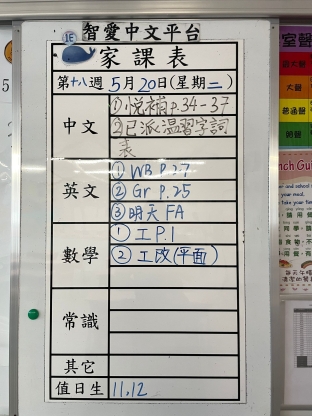 智愛中文平台
1E
家課表
第十八週 5月20日(星期二)
中文
①悅補 p.34-37
②已派溫習字詞
表
英文
① WB P.27
② Gr P.25
③ 明天 FA
數學
① 工 P.1
② 工改(平面)
常識
其它
值日生
11,12
室聲